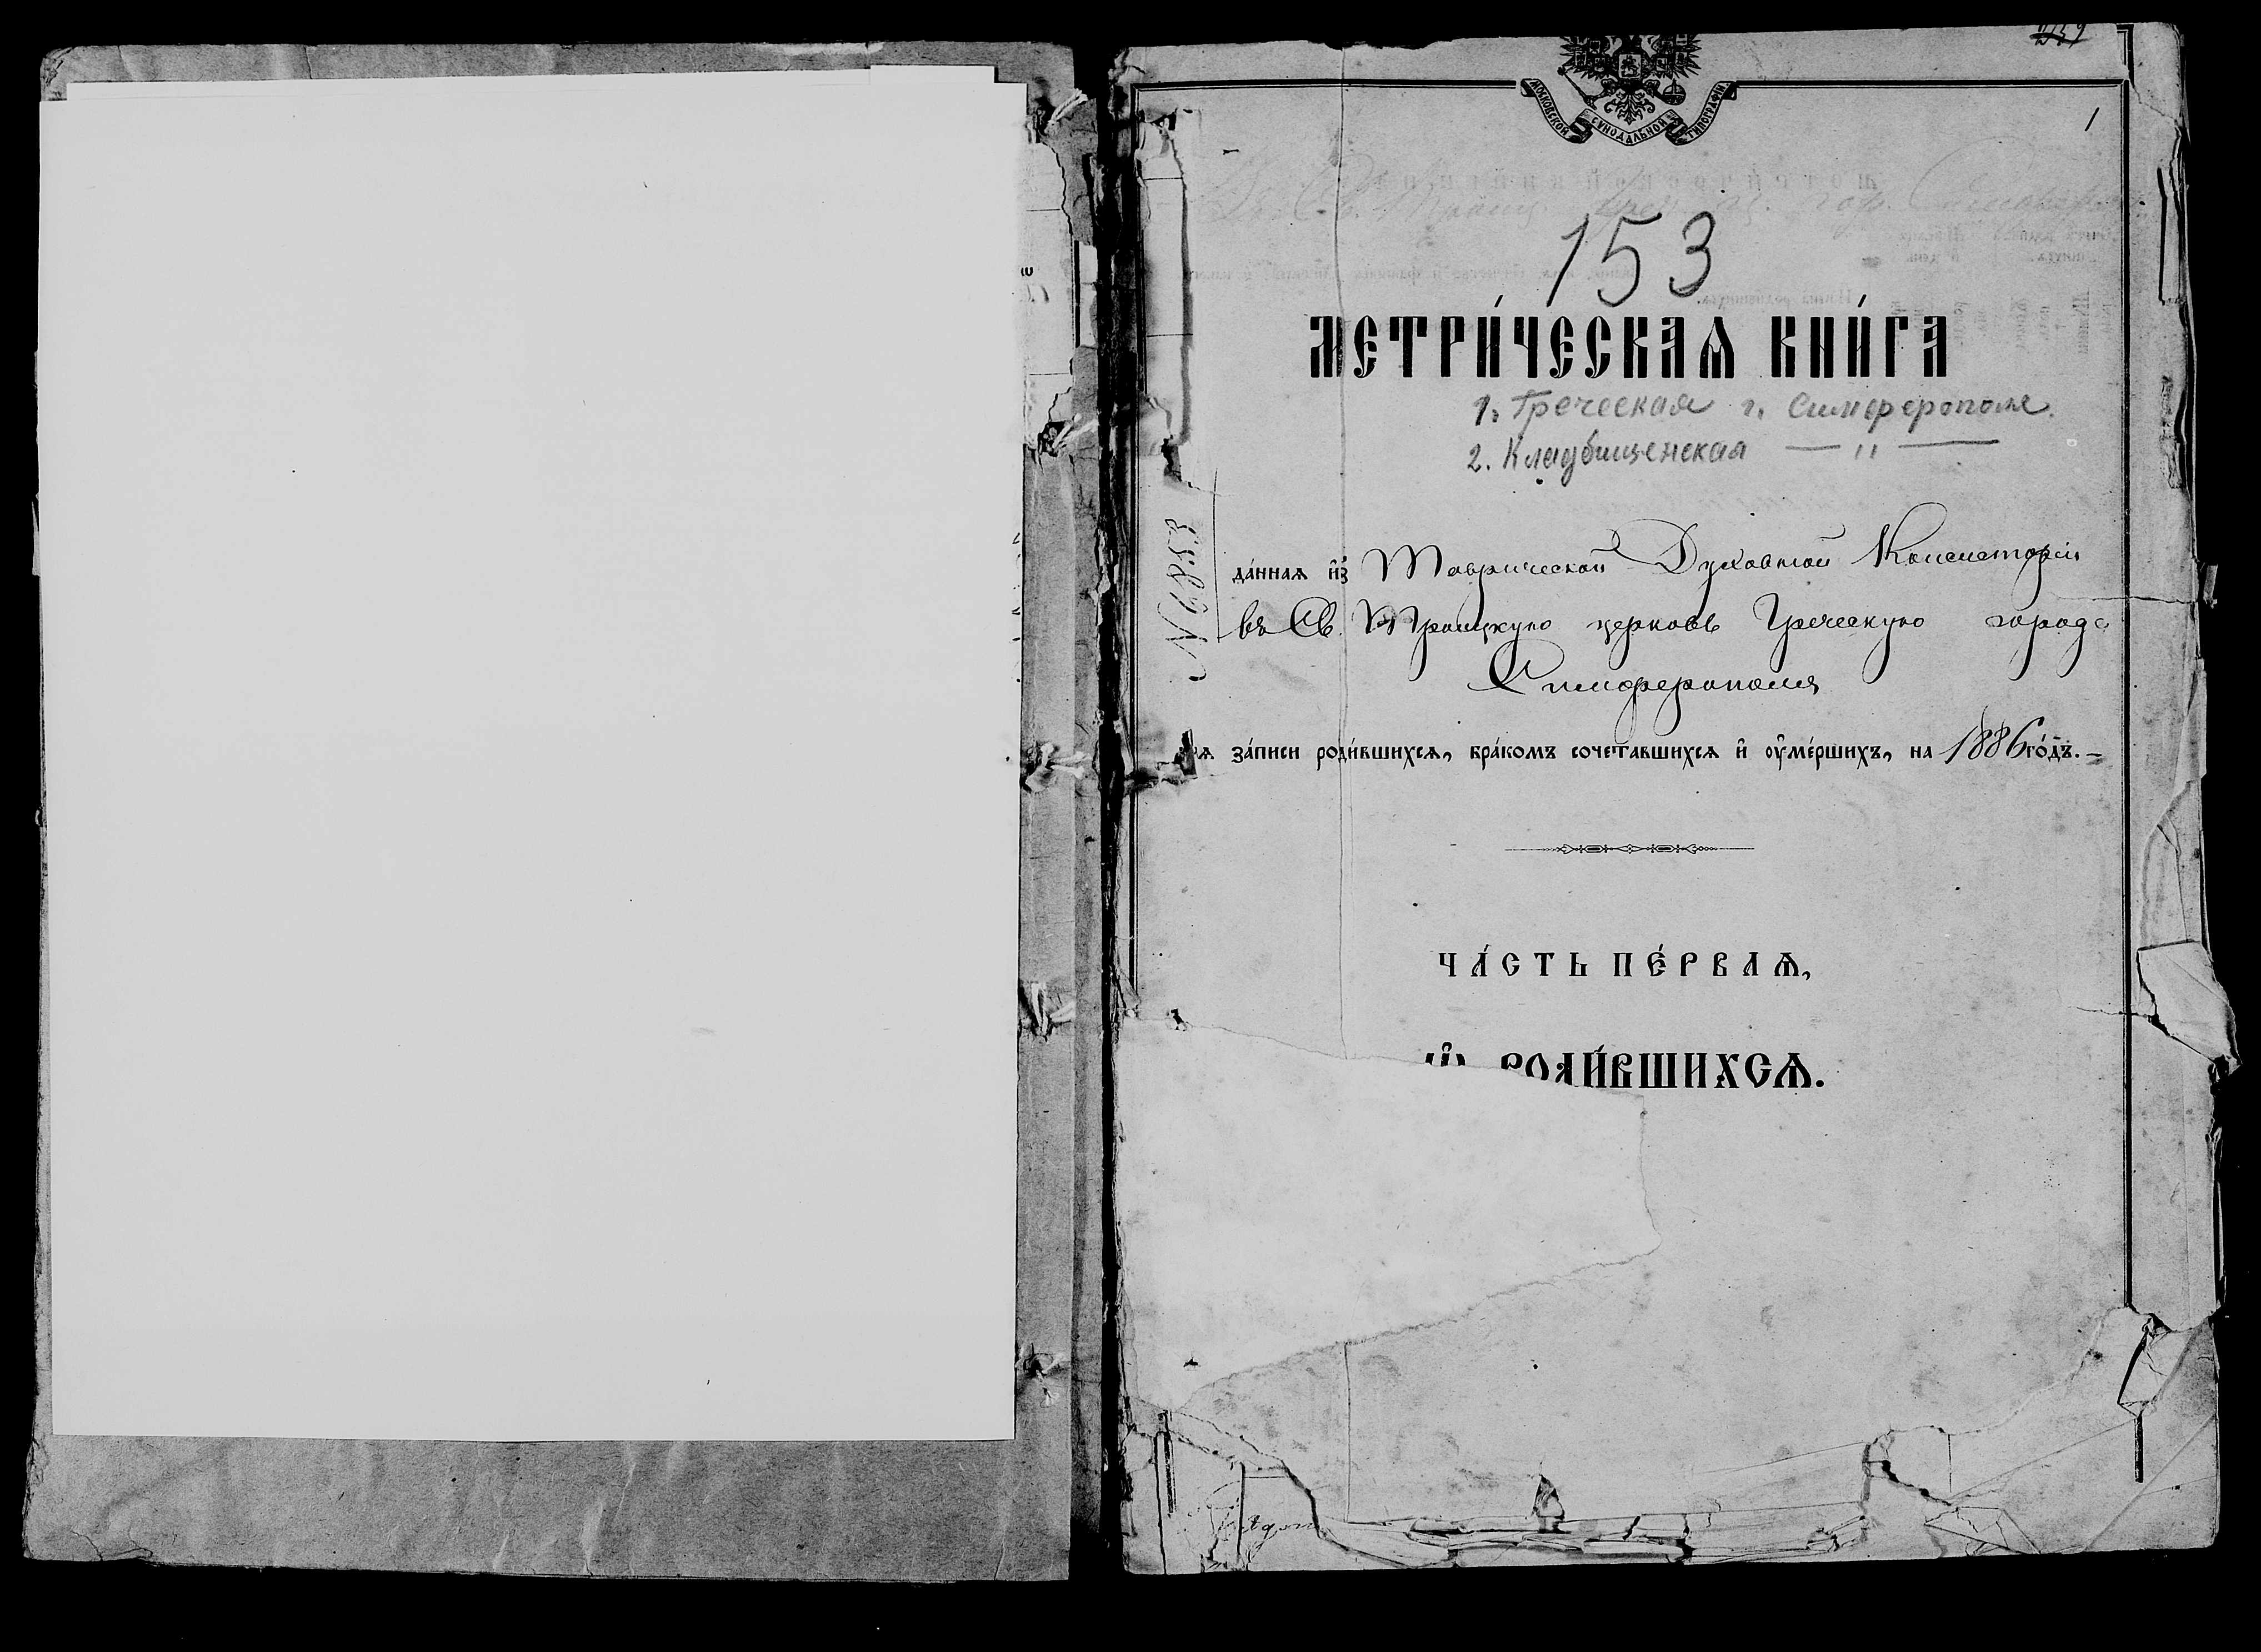 1
МОСКОВСКОЙ СѴНОДАЛЬНОЙ ТИПОГРАФІИ
153
МЕТРИ́ЧЕСКАѦ КНИ́ГА
1. Греческая г. Симферополя.
2. Кладбищенская — " —
да́ннаѧ и҆з̾ Таврической Духовной Консисторіи
въ Св. Троицкую церковь Греческую города
Симферополя
за́писи роди́вшихсѧ, бра́комъ сочета́вшихсѧ и҆ ᲂу҆ме́ршихъ, на 1886 го́дъ.
ЧА́СТЬ ПЕ́РВАѦ,
Ѡ҆ РОДИ́ВШИХСѦ.